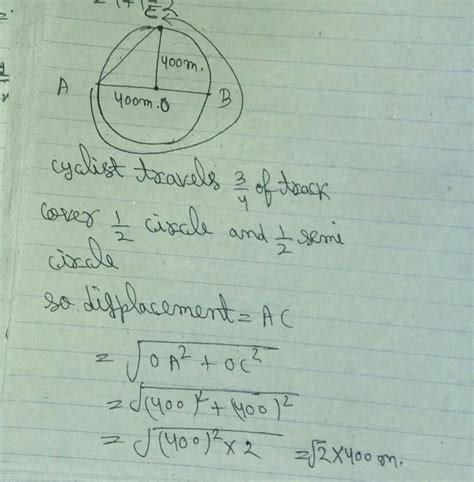 C
400m.
A
400m. O
B
cyclist travels 3/4 of track
cover 1/2 circle and 1/2 semi
circle
so displacement = AC
= √OA² + OC²
= √(400)² + (400)²
= √(400)² × 2 = √2 × 400 m.